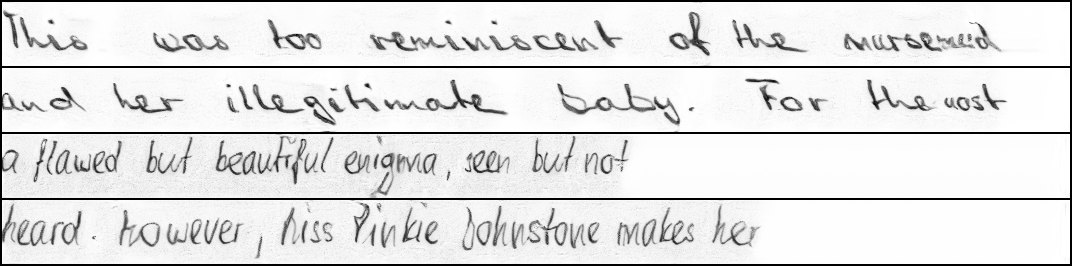 This was too reminiscent of the nursemaid
and her illegitimate baby. For the most
a flawed but beautiful enigma, seen but not
heard. However, Miss Pinkie Johnstone makes her